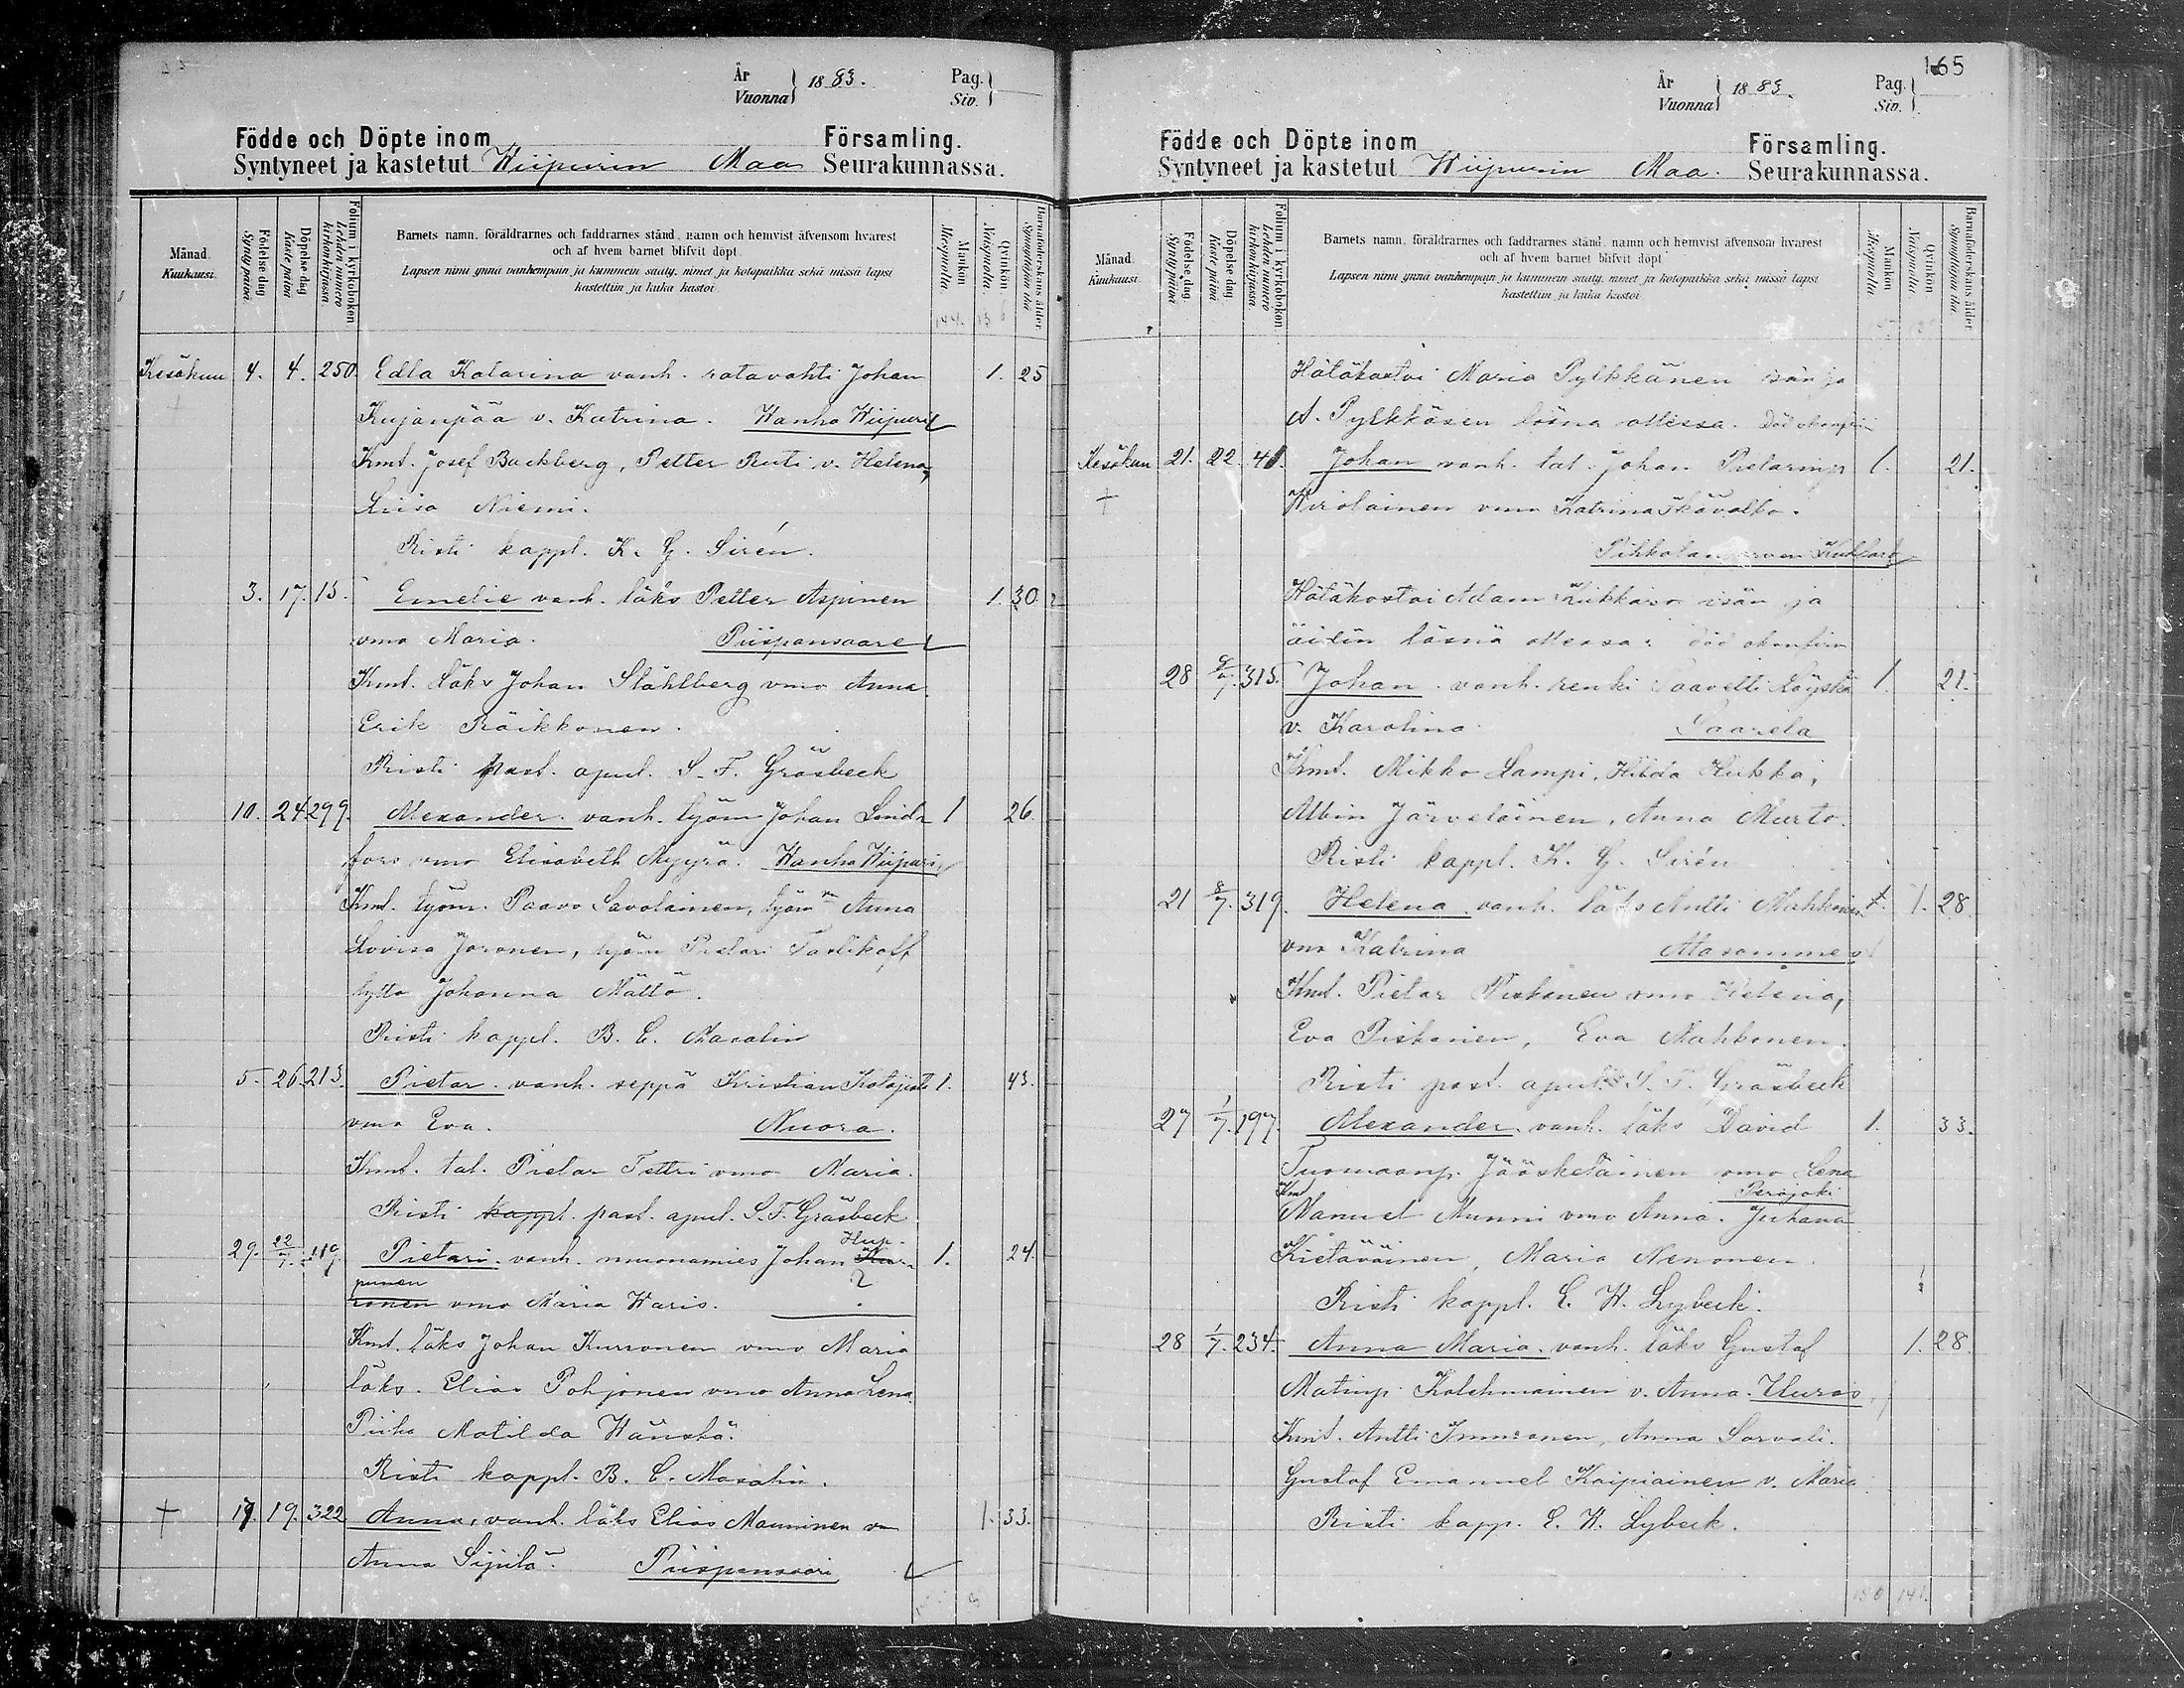 År
Vuonna } 1883.
Pag.
Siv.
Födde och Döpte inom
Församling.
Syntyneet ja kastetut Wiipurin Maa Seurakunnassa.
Månad.
Kuukausi.
Födelse dag
Synty päivä.
Döpelse dag
Kaste päivä
Folium i kyrkoboken
Lehden numero
kirkonkirjassa
Barnets namn, föräldrarnes och faddrarnes stånd, namn och hemvist äfvensom hvarest
och af hvem barnet blifvit döpt.
Lapsen nimi ynnä vanhempain ja kummein sääty, nimet ja kotopaikka sekä missä lapsi
kastettiin ja kuka kastoi
Mankön
Miespuolia
Qvinkön
Vaispuolia.
Barnaföderskans ålder
Synnyttäjän ikä
Kesäkuu 4. 4. 250. Edla Katarina vanh. ratavahti Johan 1. 25
Kujanpää v. Katrina. Wanha Wiipuri
Kmt. Josef Backberg, Petter Ruti v. Helena,
Liisa Niemi.
Risti kappl. K. G. Sirén.
3. 17. 15. Emelie vanh. läks Petter Aspinen 1. 30.
vmo Maria. Piispansaare
Kmt. läks Johan Ståhlberg vmo Anna
Erik Räikkonen.
Risti past. apul. S. F. Gräsbeck
10. 24 299. Alexander vanh. työm Johan Lind= 1 26.
fors vmo Elisabeth Myyrä. Wanha Wiipuri
Kmt. työm. Paavo Savolainen, työm Anna
Lovisa Joronen, työm Pietari
tyttö Johanna Mättö.
Risti kappl. B. C. Masalin
5. 26 213. Pietar vanh. seppä Kristian 1. 43.
vmo Eva. Nuora.
Kmt. tal. Pietar Tettri vmo Maria.
Risti kappl. past. apul. S. F. Gräsbeck
Hup-
29. 22/7. 119. Pietari vanh. muonamies Johan 1. 24.
punen ?
ronen vmo Maria Waris.
Kmt. läks Johan Kurronen vmo Maria
läks. Elias Pohjonen vmo Anna Lena
Piika Matilda Hänskä.
Risti kappl. B. C. Masalin.
† 19. 322 Anna, vanh. läks Elias Manninen vm 1. 33.
Anna Sipilä. Piispansaari
165
År
Vuonna } 1883.
Pag.
Siv.
Födde och Döpte inom
Församling.
Syntyneet ja kastetut Wiipurin Maa. Seurakunnassa.
Månad.
Kuukausi.
Födelse dag
Synty päivä.
Döpelse dag
Kaste päivä
Folium i kyrkoboken
Lehden numero
kirkonkirjassa
Barnets namn, föräldrarnes och faddrarnes stånd, namn och hemvist äfvensom hvarest
och af hvem barnet blifvit döpt
Lapsen nimi ynnä vanhempain ja kummein sääty, nimet ja kotopaikka sekä missä lapsi
kastettiin ja kuka kastoi
Mankön
Miespuolia
Qvinkön
Vaispuolia
Barnaföderskans ålder
Synnyttäjän ikä
Hätäkastoi Maria Pylkkänen isän ja
A. Pylkkäsen läsnä ollessa. Död
Kesäkuu 21. 22. Johan vanh. tal. Johan Pietarinp. 1. 21.
† Wirolainen vmo Katrina
Hätäkastoi Adam Kiikkara isän ja
äidin läsnä ollessa. död
28 9/7. 315. Johan vanh. renki Taavetti Löyskä 1. 21.
v. Karolina. Saarela
Kmt. Mikko Lampi, Hilda Hukka,
Albin Järveläinen, Anna Murto.
Risti kappl. K. G. Sirén
21 8/7. 319. Helena vanh. läks Antti Mahkonen 1. 28.
vmo Katrina Alasomme
Kmt. Pietar Piskonen vmo Helena,
Eva Piskonen, Eva Mahkonen.
Risti past. apul. S. F. Gräsbeck
27 1/7. 197. Alexander vanh. läks David 1. 33.
Tuomaanp. Jääskeläinen vmo Lena
Kmt. Perojoki
Manuel Munni vmo Anna. Juhana
Kietäväinen, Maria Nenonen.
Risti kappl. E. W. Lybeck.
28 1/7. 234. Anna Maria. vanh. läks Gustaf 1. 28.
Matinp. Kolehmainen v. Anna. Uuras
Kmt. Antti Immonen, Anna Sorvali.
Gustaf Emanuel Kaipiainen v. Maria
Risti kapp. E. W. Lybeck.
150 141.